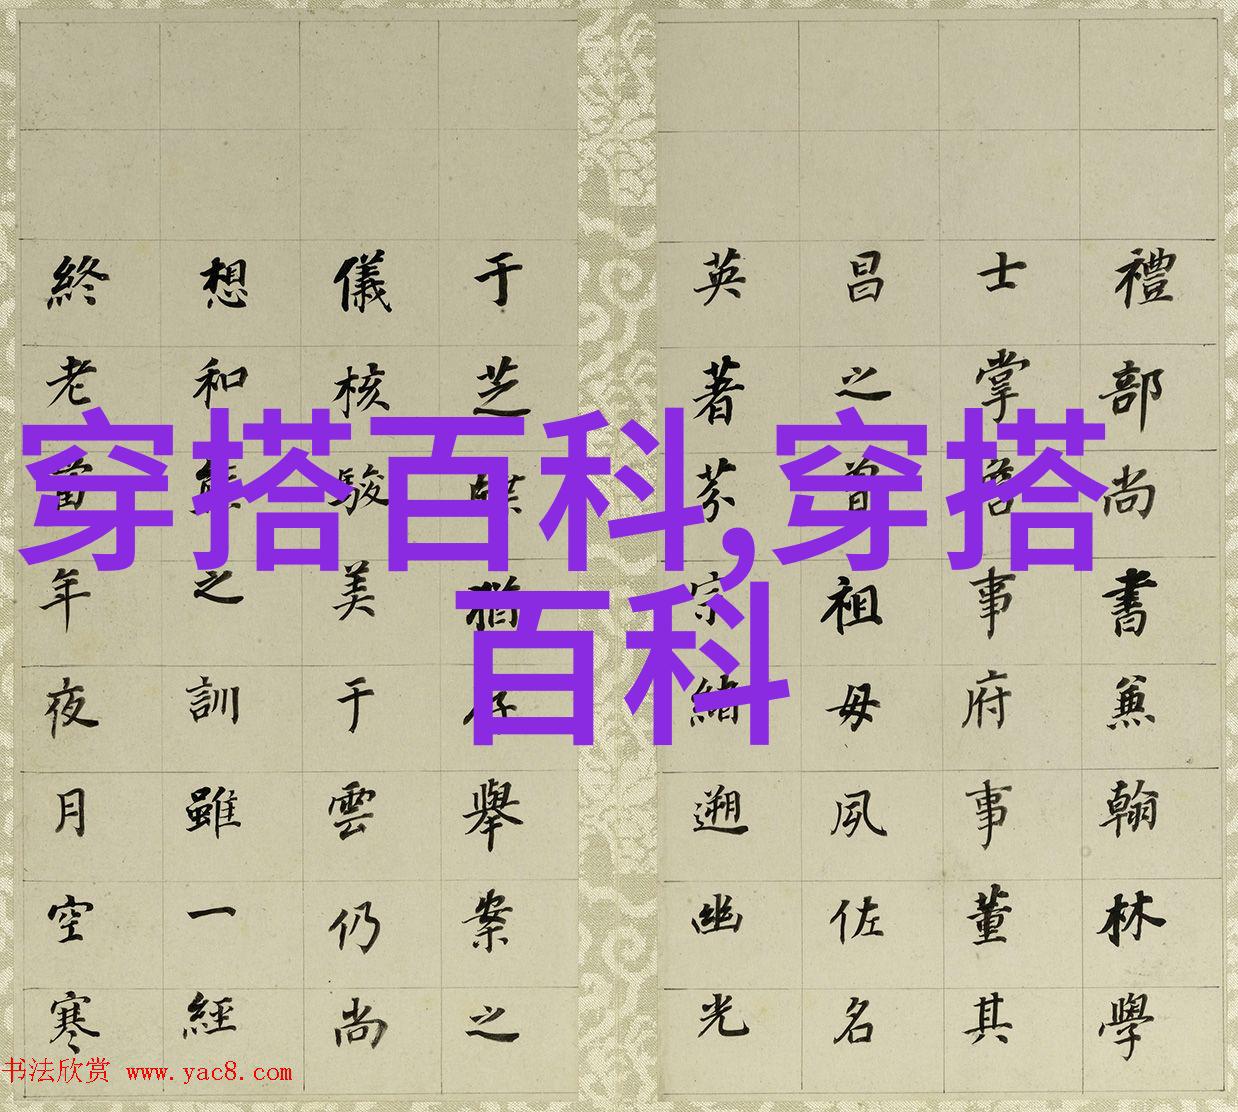 穿搭百科,穿搭
百科
禮部尚書兼翰林學
士掌詹事府事董其
昌之曾祖母夙佐名
英著芬宗緒遡幽光
于芝牒猶存舉案之
儀核駿美于雲仍尚
想和熊之訓雖一經
終老當年夜月空寒
书法欣赏 www.yac8.com